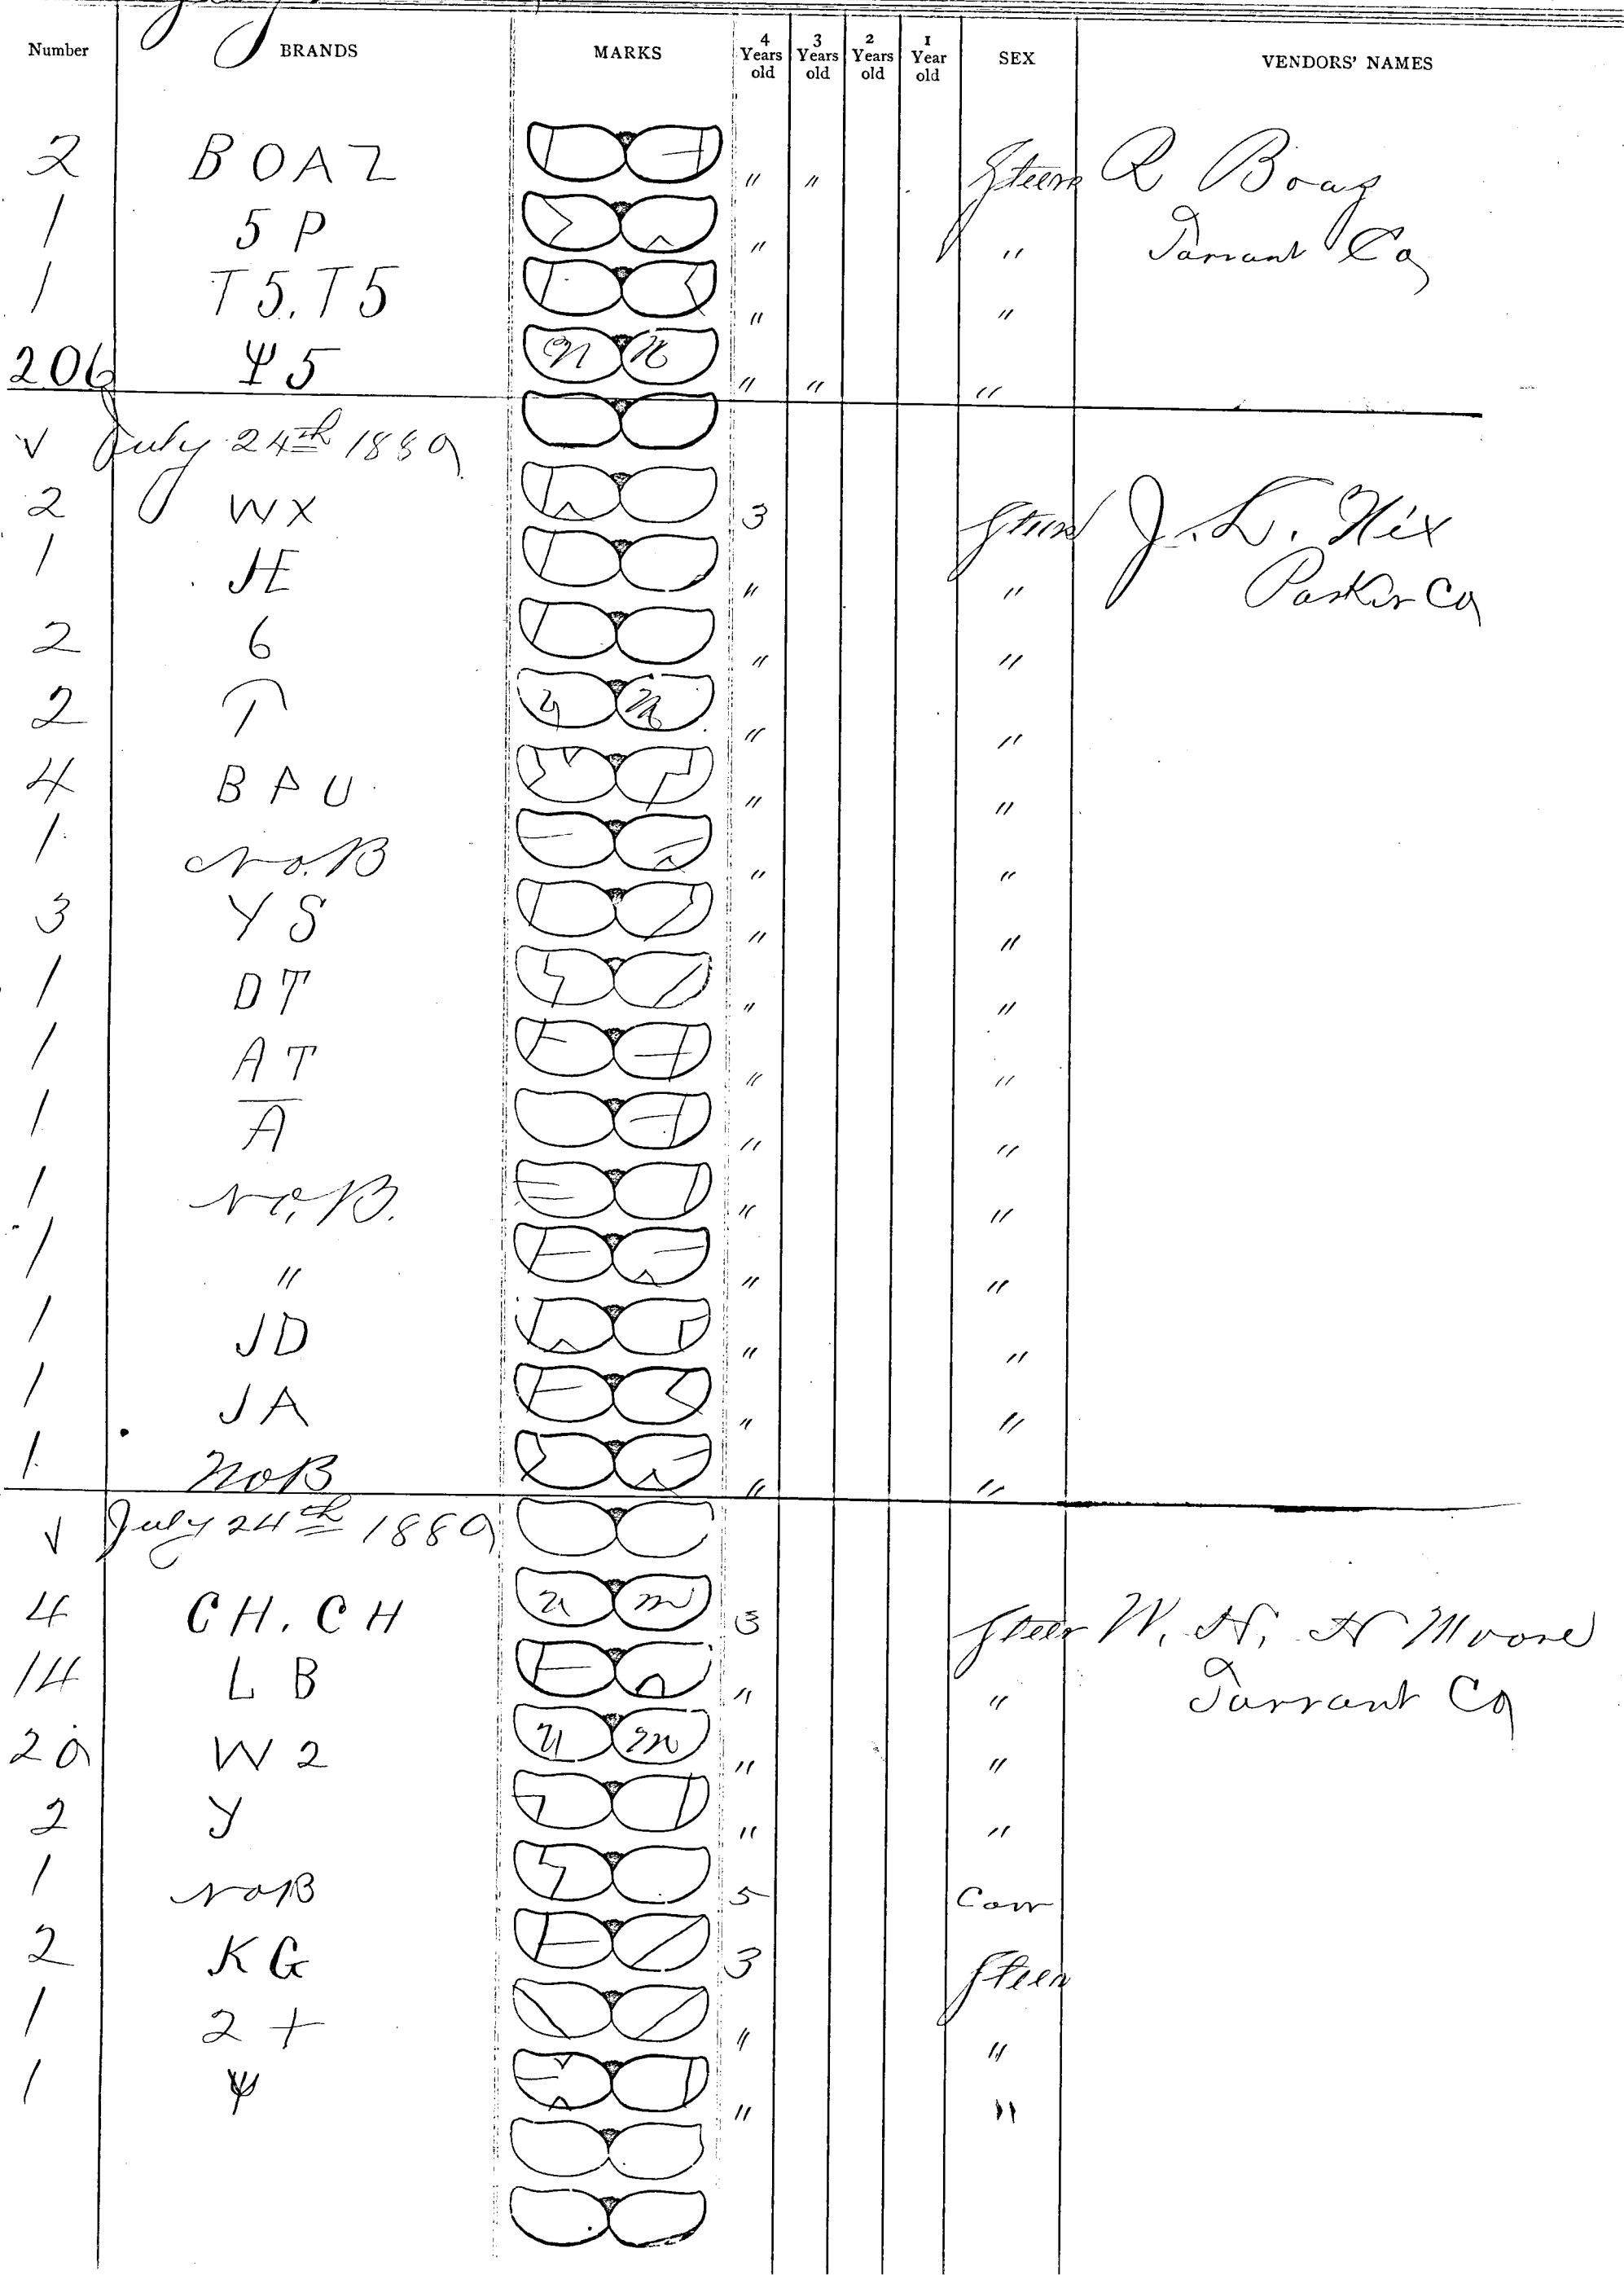 Number BRANDS MARKS 4 Years old 3 Years old 2 Years old 1 Year old SEX VENDORS' NAMES
2 BOAZ " " Steers R Boaz
1 5 P " " Tarrant Co
1 T5.T5 " "
206 Ψ5 n n " " "
√ July 24th 1889
2 WX 3 Steers J. L. Nix
1 JE " " Parker Co
2 6 " "
2 " "
4 B P U " "
1 No.B " "
3 Y S " "
1 D T " "
1 A T " "
1 A " "
1 No.B. " "
1 " " "
1 JD " "
1 JA " "
1 NoB " "
√ July 24th 1889
4 CH.CH u m 3 Steer W. H. H Moore
14 L B " " Tarrant Co
29 W 2 u m " "
2 Y " "
1 NoB 5 Cow
2 KG 3 Steer
1 2 + " "
1 Ψ " "